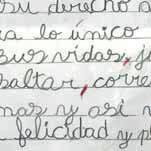 su derecho a
ia lo único
sus vidas, ju
saltar, corre
nar y asi v
felicidad y p